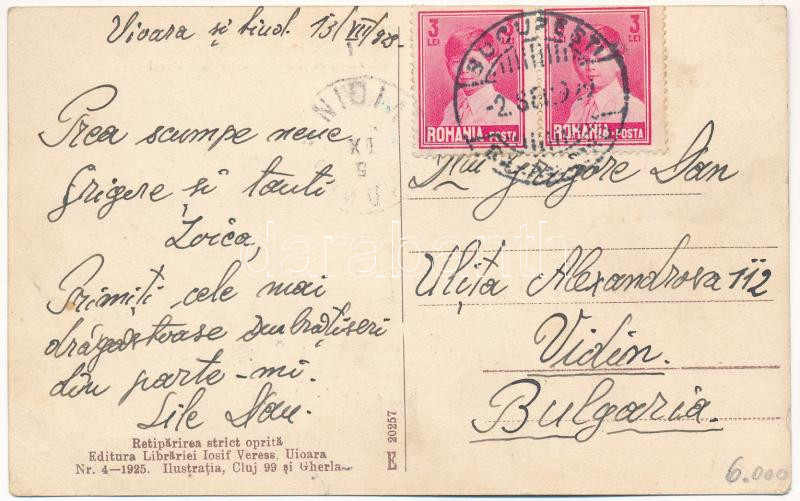 Vioara și biud. 13/VIII/928.
Prea scumpe nene
Grigore și tanti
Zoica,
Primiți cele mai
drăgăstoase îmbrățiseri
din parte-mi.
Lile Dan.
Retipărirea strict oprită
Editura Librăriei Iosif Veress, Uioara
Nr. 4—1925. Ilustrația, Cluj 99 și Gherla
20257
3 LEI
3 LEI
ROMANIA-POSTA
ROMANIA-POSTA
BUCURESTI
Grigore Dan
Ulița Alexandrova 112
Vidin.
Bulgaria.
6.000
darabanth